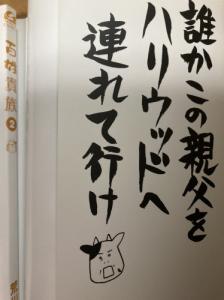 誰かこの親父を
ハリウッドへ
連れて行け
百姓貴族
2